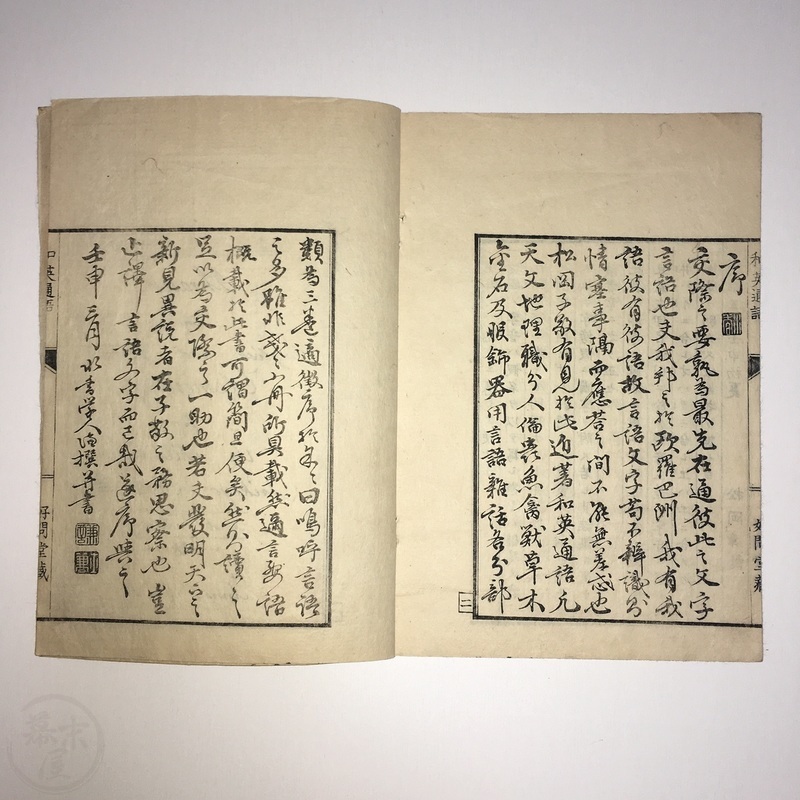 序
交際之要孰為最先在通彼此之文字
言語也夫我邦之於歐羅巴洲我有我
語彼有彼語故言語文字苟不辨識則
情塞事隔而應答之間不能無差惑也
松岡子敬有見於此近著和英通語凡
天文地理職分人倫喪魚禽獸草木
金石及服飾器用言語雜話各分部
類為三卷適徵序於余々曰嗚呼言語
之多雖非區々小冊所具載然通言要語
概載於此書可謂簡且便矣然則讀之
足以為交際之一助也若夫發明天下之
新見異說者在子敬之務思察也豈
止譯言語文字而已哉遂序與之
壬申三月 水香学人 撰并書
和英通語
好問堂藏
和英通語
好問堂藏
三
幕末屋